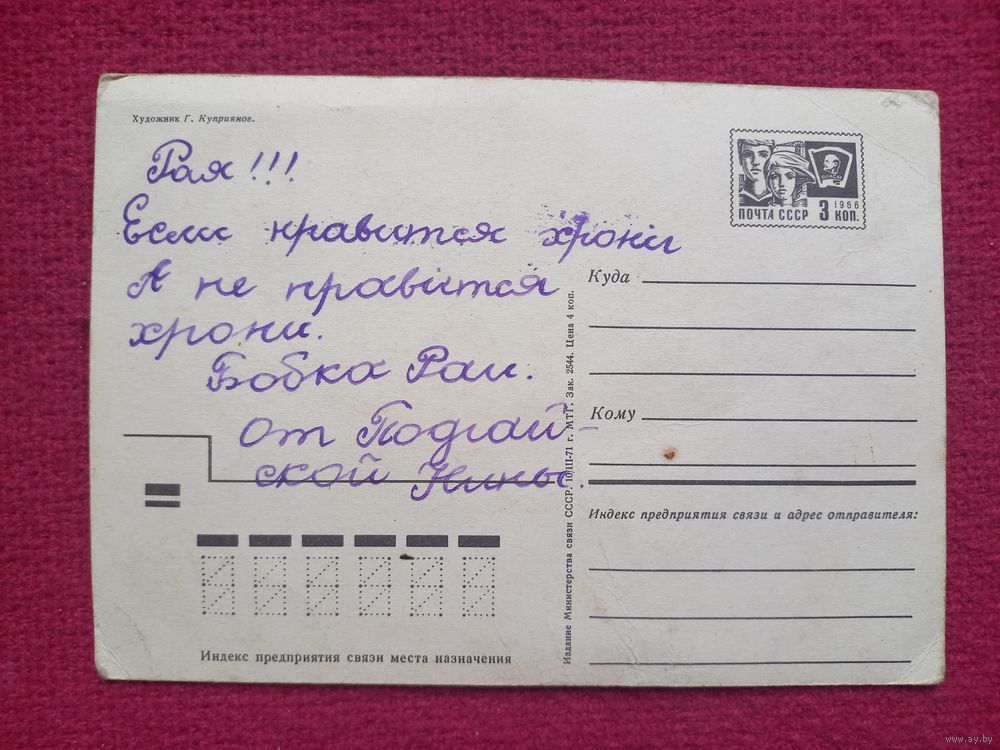 Художник Г. Куприянов.
Рая!!!
Если нравится хрони
А не нравится
хрони.
Бобка Раи.
От Подгай-
ской Нины.
1966
ПОЧТА СССР 3 КОП.
ВЛКСМ
Куда
Кому
Индекс предприятия связи и адрес отправителя:
Издание Министерства связи СССР. 10/III-71 г. МТГ. Зак. 2544. Цена 4 коп.
Индекс предприятия связи места назначения
www.ay.by